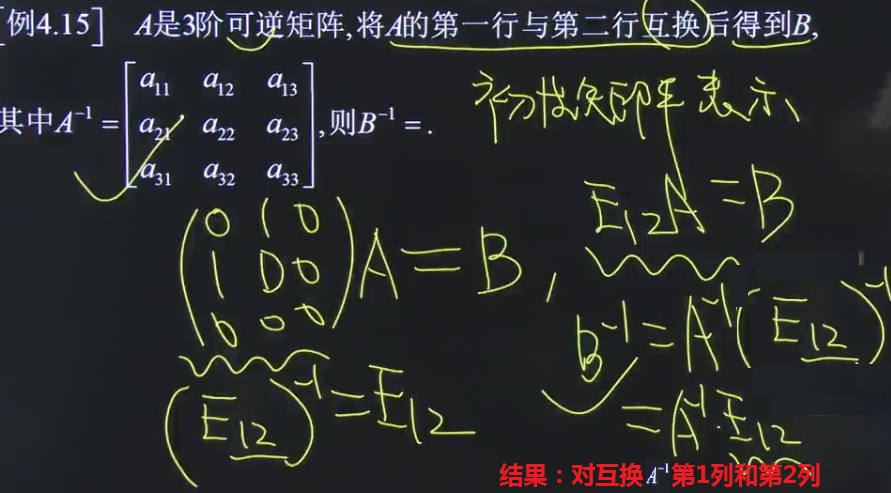 [例4.15] A是3阶可逆矩阵,将A的第一行与第二行互换后得到B,
其中A⁻¹ = [a₁₁ a₁₂ a₁₃
a₂₁ a₂₂ a₂₃
a₃₁ a₃₂ a₃₃], 则B⁻¹ = .
初等矩阵表示、
E₁₂A = B
(0 1 0
1 0 0
0 0 0) A = B ,
B⁻¹ = A⁻¹(E₁₂)⁻¹
(E₁₂)⁻¹ = E₁₂
= A⁻¹·E₁₂
结果：对互换 A⁻¹ 第1列和第2列